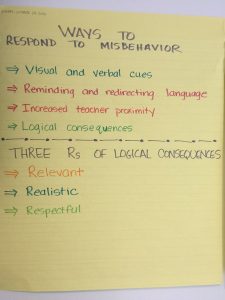 WAYS TO
RESPOND TO MISBEHAVIOR
⇒ Visual and verbal cues
⇒ Reminding and redirecting language
⇒ Increased teacher proximity
⇒ Logical consequences
THREE Rs OF LOGICAL CONSEQUENCES
⇒ Relevant
⇒ Realistic
⇒ Respectful